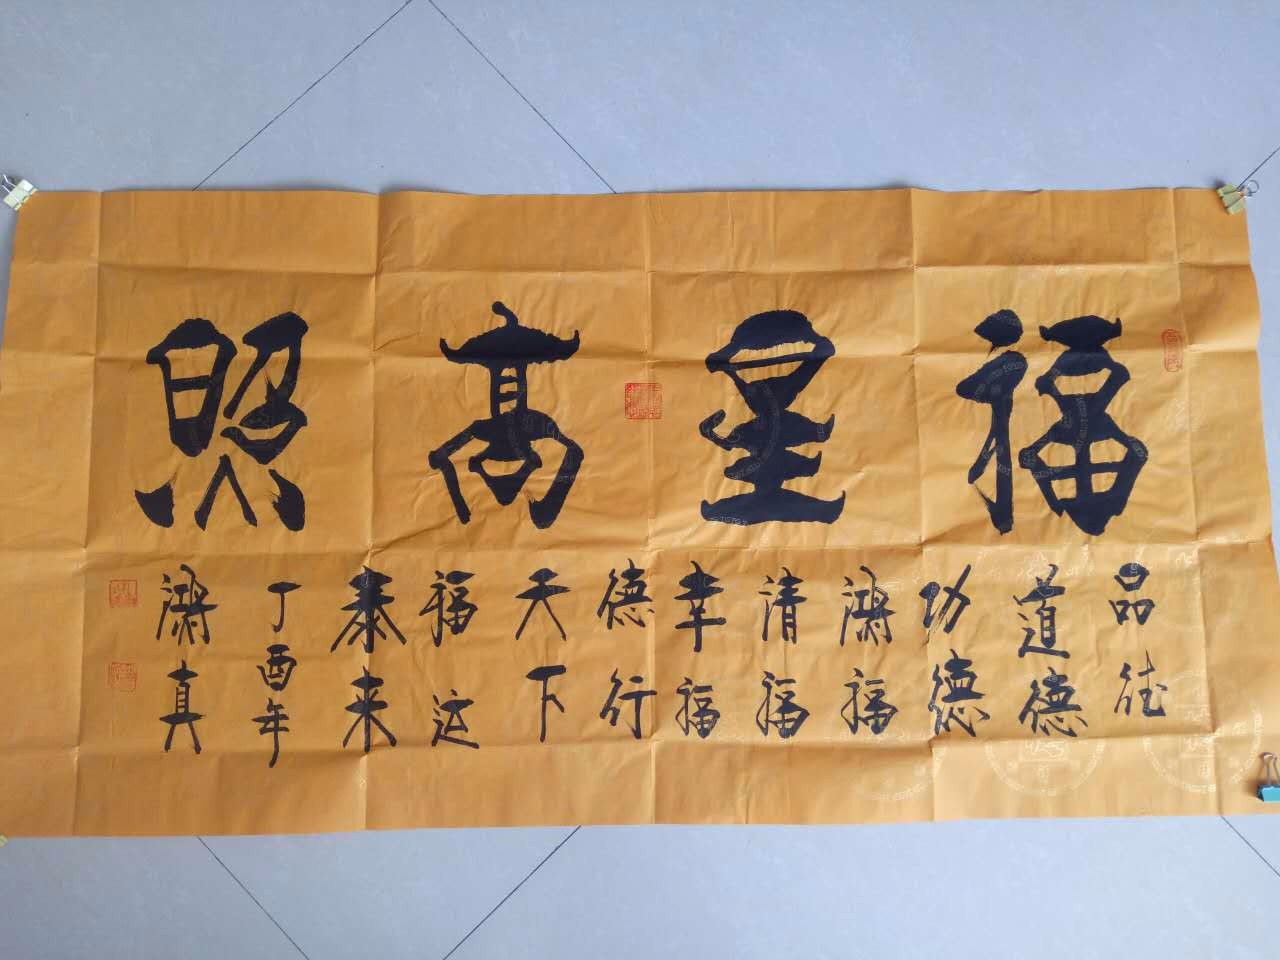 福星高照
品德
道德
功德
鸿福
清福
幸福
德行
天下
福运
泰来
丁酉年
真